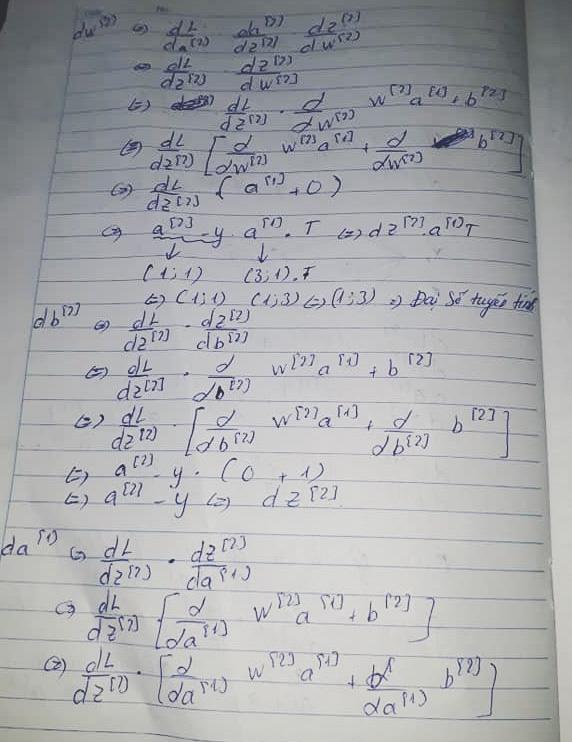 dw^[2] <=> dL/da^[2] · da^[2]/dz^[2] · dz^[2]/dw^[2]
<=> dL/dz^[2] · dz^[2]/dw^[2]
<=> dL/dz^[2] · d/dw^[2] w^[2] a^[1] + b^[2]
<=> dL/dz^[2] [ d/dw^[2] w^[2] a^[1] + d/dw^[2] b^[2] ]
<=> dL/dz^[2] ( a^[1] + 0 )
<=> a^[2] - y · a^[1] . T <=> dz^[2] . a^[1]T
(1;1) (3;1).T
<=> (1;1) (1;3) <=> (1;3) => Đại Số tuyến tính
db^[2] <=> dL/dz^[2] · dz^[2]/db^[2]
<=> dL/dz^[2] · d/db^[2] w^[2] a^[1] + b^[2]
<=> dL/dz^[2] · [ d/db^[2] w^[2] a^[1] + d/db^[2] b^[2] ]
<=> a^[2] - y · (0 + 1)
<=> a^[2] - y <=> dz^[2]
da^[1] <=> dL/dz^[2] · dz^[2]/da^[1]
<=> dL/dz^[2] [ d/da^[1] w^[2] a^[1] + b^[2] ]
<=> dL/dz^[2] · [ d/da^[1] w^[2] a^[1] + d/da^[1] b^[2] ]